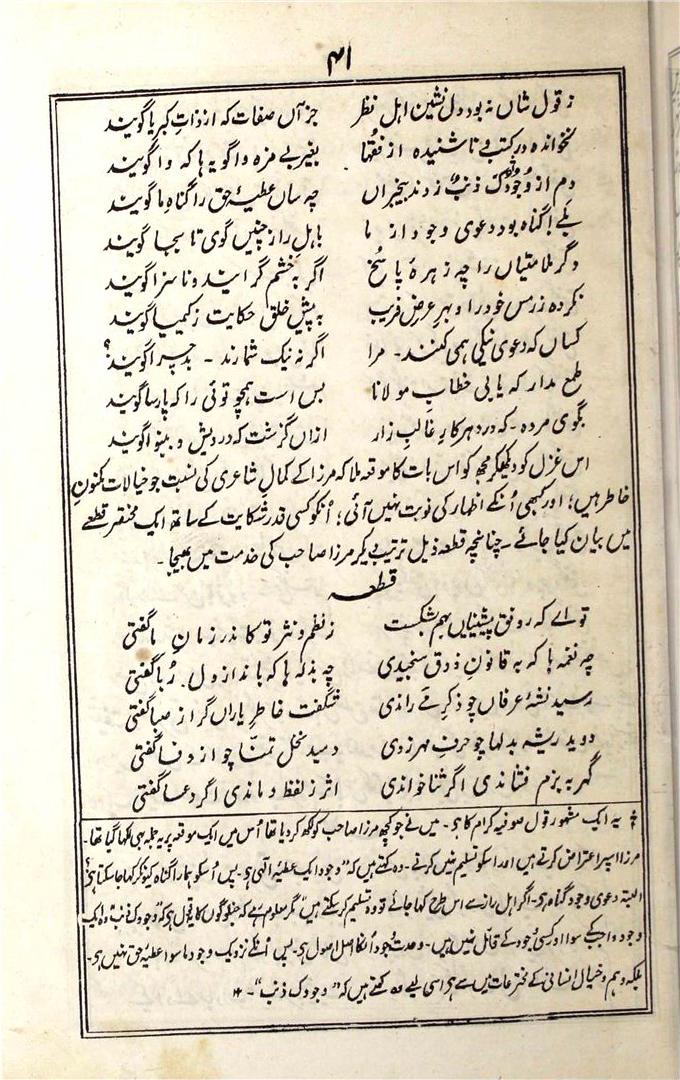 ۴۱
ز قول شاں نہ بود دل نشین اہل نظر جز آں صفات کہ از ذاتِ کبریا گویند
نخواندہ در کتب و ناشنیدہ از فقہا بغیر بے مزہ واگویہ ہا کہ واگویند
دم از وُجودُکَ ذنبٌ زدند بیخبراں چہ ساں عطیۂ حق را گناہِ ما گویند
بگے گناہ بود دعوی وجود از ما باہلِ راز چنیں گوی تا بجا گویند
دگر ملامتیاں را چہ زہرۂ پاسخ اگر بہ خشم گرایند و ناسزا گویند
نکردہ زر مسِ خود را و بہرِ عرضِ فریب بہ پیشِ خلق حکایت ز کیمیا گویند
کساں کہ دعوی نیکی ہمی کنند۔ مرا اگر نہ نیک شمارند ۔ بد چرا گویند؟
طمع مدار کہ یابی خطابِ مولانا بس است ہمچو توئی را کہ پارسا گویند
بگوی مردہ۔ کہ در دہر کارِ غالبِ زار ازاں گزشت کہ درویش و بینوا گویند
اس غزل کو دیکھکر مجھ کو اس بات کا موقعہ ملا کہ مرزا کے کمالِ شاعری کی نسبت جو خیالات مکنونِ
خاطر ہیں؛ اور کبھی اُنکے اظہار کی نوبت نہیں آئی؛ اُنکو کسی قدر شکایت کے ساتھ ایک مختصر قطعے
میں بیان کیا جائے۔ چنانچہ قطعہ ذیل ترتیب دیکر مرزا صاحب کی خدمت میں بھیجا۔
قطعہ
تو اے کہ رونقِ پیشینیاں بہم بشکست ز نظم و نثر تو کاندر زمانِ ما گفتی
چہ نغمہ ہا کہ بہ قانونِ ذوق سنجیدی چہ بذلہ ہا کہ باندازِ دل رُبا گفتی
رسید نشۂ عرفاں چو ذکرِ مے راندی شگفت خاطرِ یاراں گر از صبا گفتی
دوید ریشہ بدلہا چو حرفِ مہر زدی دمید نخلِ تمنّا چو از وفا گفتی
گہر بہ بزم فشاندی اگر ثنا خواندی اثر ز لفظ دماندی اگر دعا گفتی
یہ ایک مشہور قول صوفیہ کرام کا ہے۔ میں نے جو کچھ مرزا صاحب کو لکھ کر دیا تھا اُس میں ایک موقعہ پر یہ جملہ بھی لکھا گیا تھا۔
مرزا اسپر اعتراض کرتے ہیں اور اسکو تسلیم نہیں کرتے۔ وہ کہتے ہیں کہ ”وجود ایک عطیۂ الٰہی ہے۔ پس اُسکو ہمارا گناہ کیونکر کہا جا سکتا ہے؟
البتہ دعوی وجود گناہ ہے۔ اگر اہل راز سے اس طرح کہا جائے تو وہ تسلیم کر سکتے ہیں“ مگر معلوم رہے کہ جن لوگوں کا یہ قول ہے کہ ”وجودک ذنب“ وہ ایک
وجود واجب کے سوا اور کسی وجود کے قائل نہیں ہیں۔ وحدتِ وجود اُنکا اصل اصول ہے۔ پس اُنکے نزدیک وجود ما سوا عطیۂ حق نہیں ہے۔
بلکہ وہم و خیال انسانی کے مخترعات میں سے ہے اسی لیے وہ کہتے ہیں کہ ”وجودک ذنب“۔ ۱۲